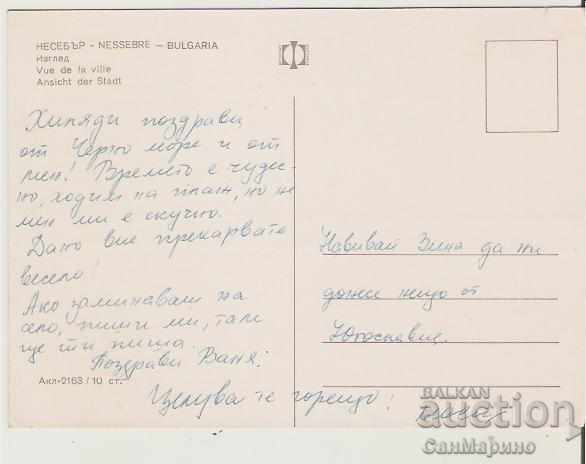 НЕСЕБЪР - NESSEBRE — BULGARIA
Изглед
Vue de la ville
Ansicht der Stadt
Хиляди поздрави
от Черно море и от
мен! Времето е чудес-
но, ходим на плаж, но на
мен ми е скучно.
Дано вие прекарвате
весело!
Ако заминавали на
село, пиши ми, там
ще ти пиша.
Поздрави Ваня!
Целува те горещо!
Акл-2163 / 10 ст.
Навивай Зина да ни
донесе нещо от
Югославия.
BALKAN
auction
СанМарино